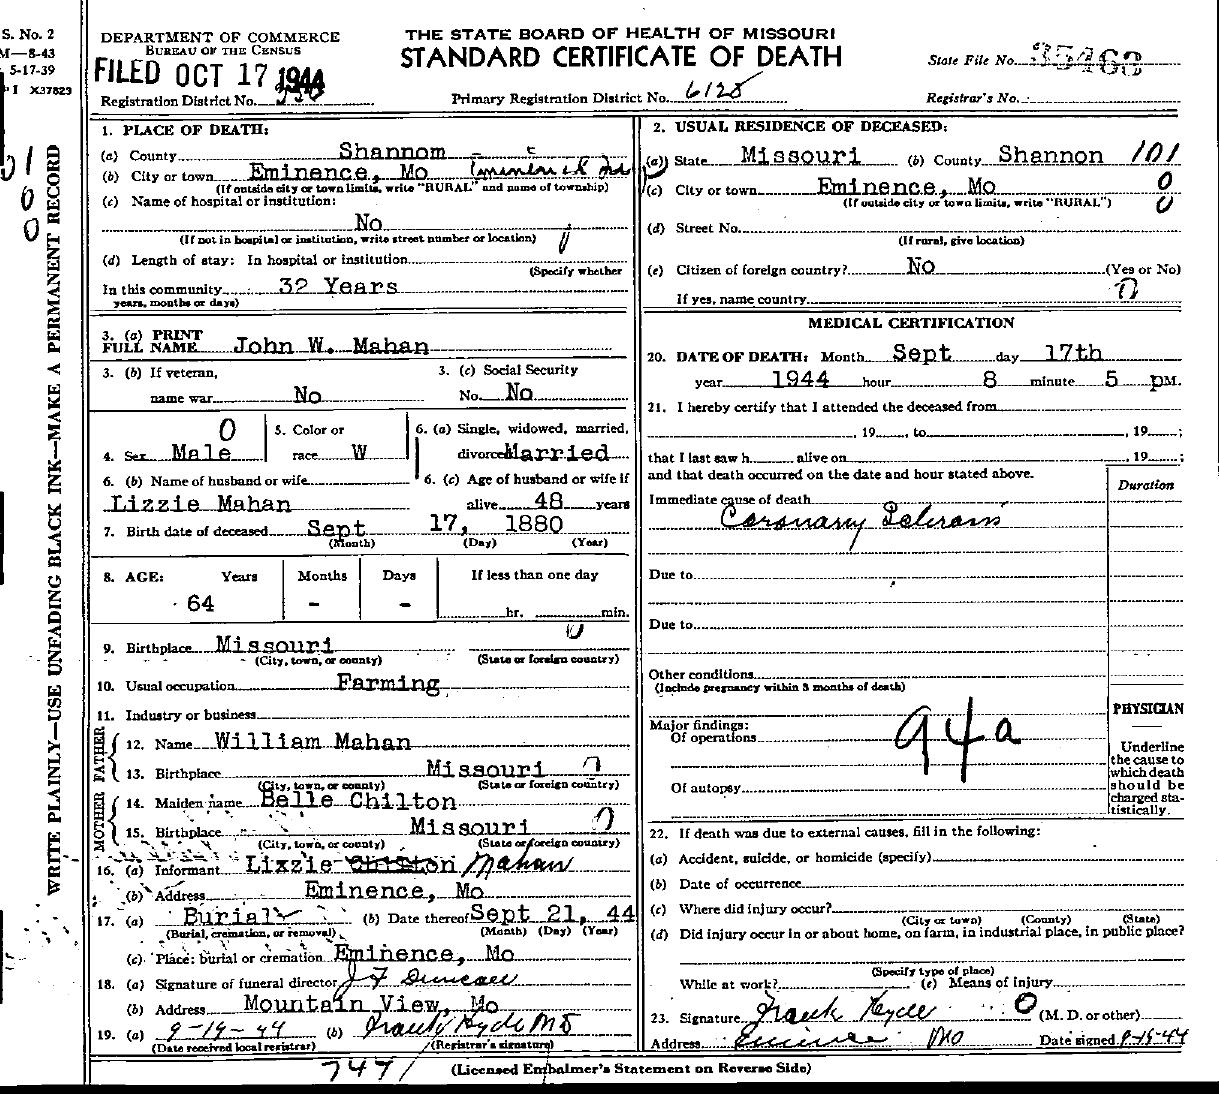 S. No. 2
M—8-43
5-17-39
I X37823
WRITE PLAINLY—USE UNFADING BLACK INK—MAKE A PERMANENT RECORD
DEPARTMENT OF COMMERCE
BUREAU OF THE CENSUS
FILED OCT 17 1944
Registration District No.
THE STATE BOARD OF HEALTH OF MISSOURI
STANDARD CERTIFICATE OF DEATH
Primary Registration District No. 6128
State File No. 35463
Registrar's No.
1. PLACE OF DEATH:
(a) County Shannom
(b) City or town Eminence, Mo
(If outside city or town limits, write "RURAL" and name of township)
(c) Name of hospital or institution:
No
(If not in hospital or institution, write street number or location)
(d) Length of stay: In hospital or institution
(Specify whether
In this community 32 Years
years, months or days)
3. (a) PRINT
FULL NAME John W. Mahan
3. (b) If veteran,
name war No
3. (c) Social Security
No. No
4. Sex Male 0
5. Color or
race W
6. (a) Single, widowed, married,
divorced Married
6. (b) Name of husband or wife
Lizzie Mahan
6. (c) Age of husband or wife if
alive 48 years
7. Birth date of deceased Sept 17, 1880
(Month) (Day) (Year)
8. AGE: Years Months Days If less than one day
64 - - hr. min.
9. Birthplace Missouri
(City, town, or county) (State or foreign country)
10. Usual occupation Farming
11. Industry or business
FATHER
12. Name William Mahan
13. Birthplace Missouri
(City, town, or county) (State or foreign country)
MOTHER
14. Maiden name Belle Chilton
15. Birthplace Missouri
(City, town, or county) (State or foreign country)
16. (a) Informant Lizzie Mahan
(b) Address Eminence, Mo
17. (a) Burial (b) Date thereof Sept 21, 44
(Burial, cremation, or removal) (Month) (Day) (Year)
(c) Place: burial or cremation Eminence, Mo
18. (a) Signature of funeral director J F Duncan
(b) Address Mountain View, Mo
19. (a) 9-19-44 (b) Frank Hyde MD
(Date received local registrar) (Registrar's signature)
2. USUAL RESIDENCE OF DECEASED:
(a) State Missouri (b) County Shannon 101
(c) City or town Eminence, Mo 0
(If outside city or town limits, write "RURAL") 0
(d) Street No.
(If rural, give location)
(e) Citizen of foreign country? No (Yes or No)
If yes, name country
MEDICAL CERTIFICATION
20. DATE OF DEATH: Month Sept day 17th
year 1944 hour 8 minute 5 pM.
21. I hereby certify that I attended the deceased from
, 19 , to , 19 ;
that I last saw h alive on , 19 ;
and that death occurred on the date and hour stated above.
Duration
Immediate cause of death
Coronary
Due to
Due to
Other conditions
(Include pregnancy within 3 months of death)
Major findings:
Of operations
94a
Of autopsy
PHYSICIAN
Underline
the cause to
which death
should be
charged sta-
tistically.
22. If death was due to external causes, fill in the following:
(a) Accident, suicide, or homicide (specify)
(b) Date of occurrence
(c) Where did injury occur?
(City or town) (County) (State)
(d) Did injury occur in or about home, on farm, in industrial place, in public place?
(Specify type of place)
While at work? (e) Means of injury
23. Signature Frank Hyde (M. D. or other)
Address Eminence Mo Date signed
747
(Licensed Embalmer's Statement on Reverse Side)